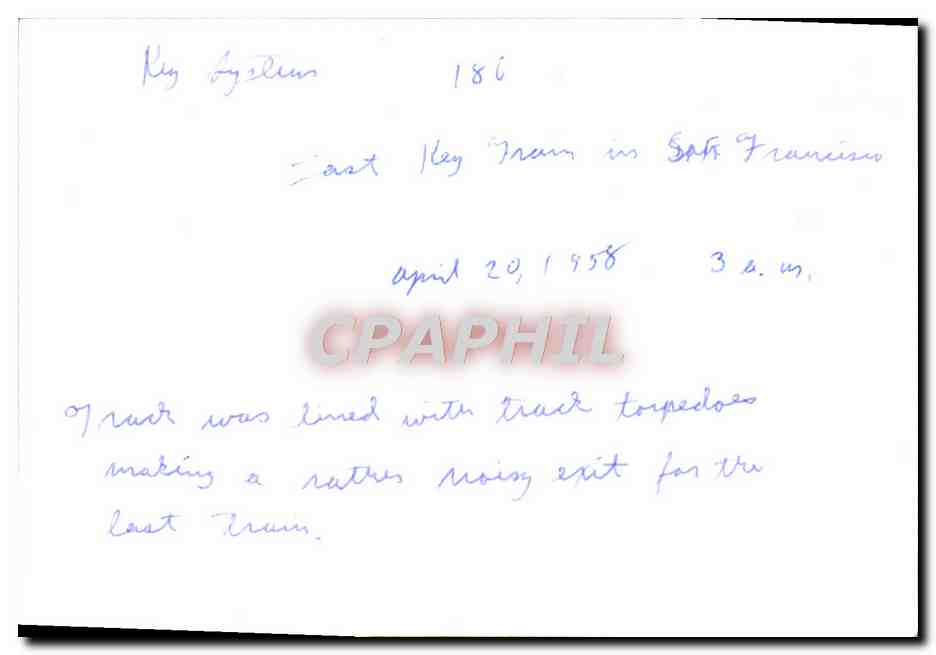 Key System 186
Last Key Train in San Francisco
april 20, 1958 3 a. m.
CPAPHIL
Track was lined with track torpedoes
making a rather noisy exit for the
last train.